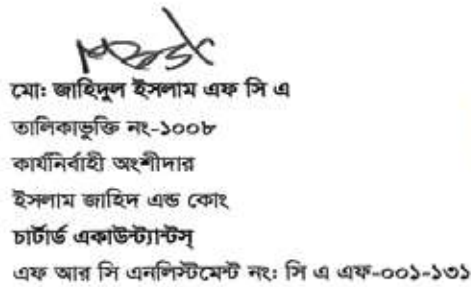 মো: জাহিদুল ইসলাম এফ সি এ
তালিকাভুক্তি নং-১০০৮
কার্যনির্বাহী অংশীদার
ইসলাম জাহিদ এন্ড কোং
চার্টার্ড একাউন্ট্যান্টস্
এফ আর সি এনলিস্টমেন্ট নং: সি এ এফ-০০১-১৩১